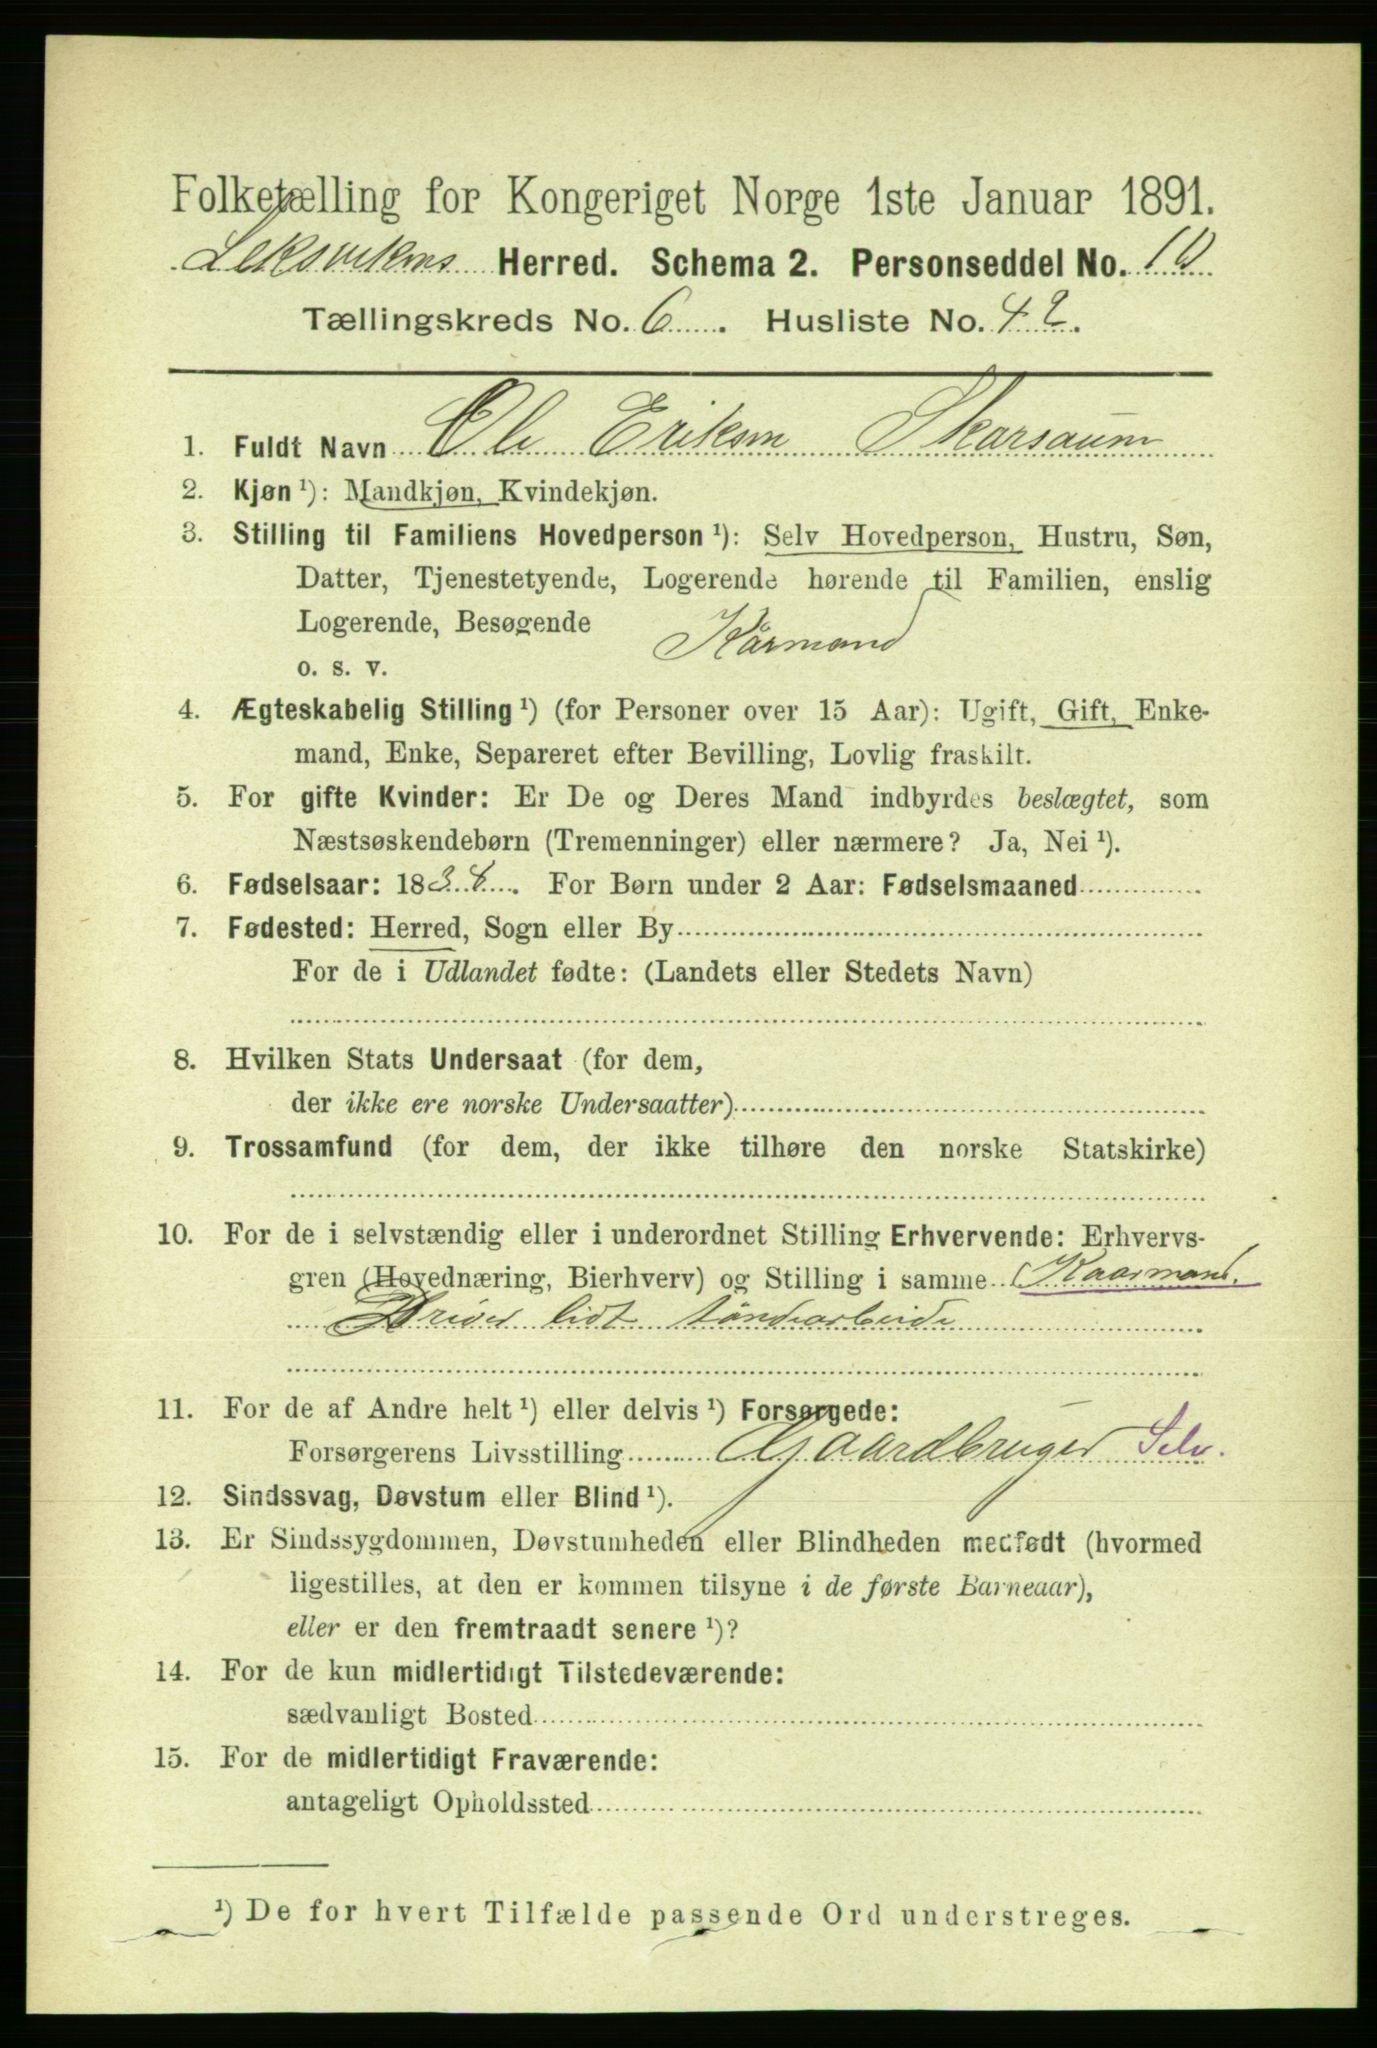 Folketælling for Kongeriget Norge 1ste Januar 1891.
Leksvikens Herred. Schema 2. Personseddel No. 10
Tællingskreds No. 6. Husliste No. 42.
1. Fuldt Navn Ole Eriksen Skarsaum
2. Kjøn ¹): Mandkjøn, Kvindekjøn.
3. Stilling til Familiens Hovedperson ¹): Selv Hovedperson, Hustru, Søn,
Datter, Tjenestetyende, Logerende hørende til Familien, enslig
Logerende, Besøgende
o. s. v. Kårmand
4. Ægteskabelig Stilling ¹) (for Personer over 15 Aar): Ugift, Gift, Enke-
mand, Enke, Separeret efter Bevilling, Lovlig fraskilt.
5. For gifte Kvinder: Er De og Deres Mand indbyrdes beslægtet, som
Næstsøskendebørn (Tremenninger) eller nærmere? Ja, Nei ¹).
6. Fødselsaar: 183. For Børn under 2 Aar: Fødselsmaaned
7. Fødested: Herred, Sogn eller By
For de i Udlandet fødte: (Landets eller Stedets Navn)
8. Hvilken Stats Undersaat (for dem,
der ikke ere norske Undersaatter)
9. Trossamfund (for dem, der ikke tilhøre den norske Statskirke)
10. For de i selvstændig eller i underordnet Stilling Erhvervende: Erhvervs-
gren (Hovednæring, Bierhverv) og Stilling i samme Kaarmand.
Driver lidt töndearbeide
11. For de af Andre helt ¹) eller delvis ¹) Forsørgede:
Forsørgerens Livsstilling Gaardbruger Selv.
12. Sindssvag, Døvstum eller Blind ¹).
13. Er Sindssygdommen, Døvstumheden eller Blindheden medfødt (hvormed
ligestilles, at den er kommen tilsyne i de første Barneaar),
eller er den fremtraadt senere ¹)?
14. For de kun midlertidigt Tilstedeværende:
sædvanligt Bosted
15. For de midlertidigt Fraværende:
antageligt Opholdssted
¹) De for hvert Tilfælde passende Ord understreges.